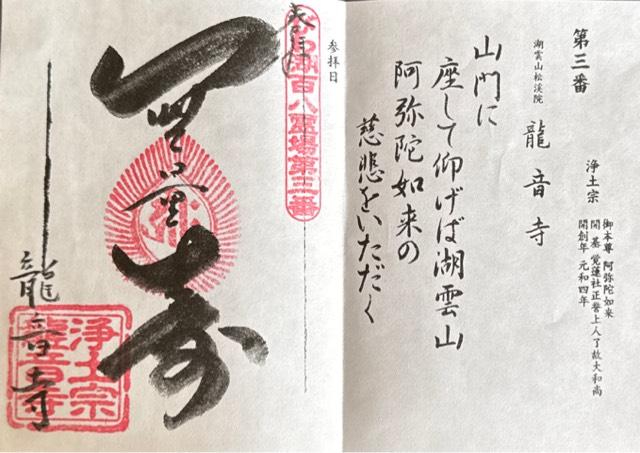 第三番
湖雲山松渓院 龍音寺
浄土宗
御本尊 阿弥陀如来
開基 覚蓮社正誉上人了故大和尚
開創年 元和四年
山門に
座して仰げば湖雲山
阿弥陀如来の
慈悲をいただく
参拝日
奉拝
びわ湖百八霊場第三番
無量寿
龍音寺
浄土宗
龍音寺